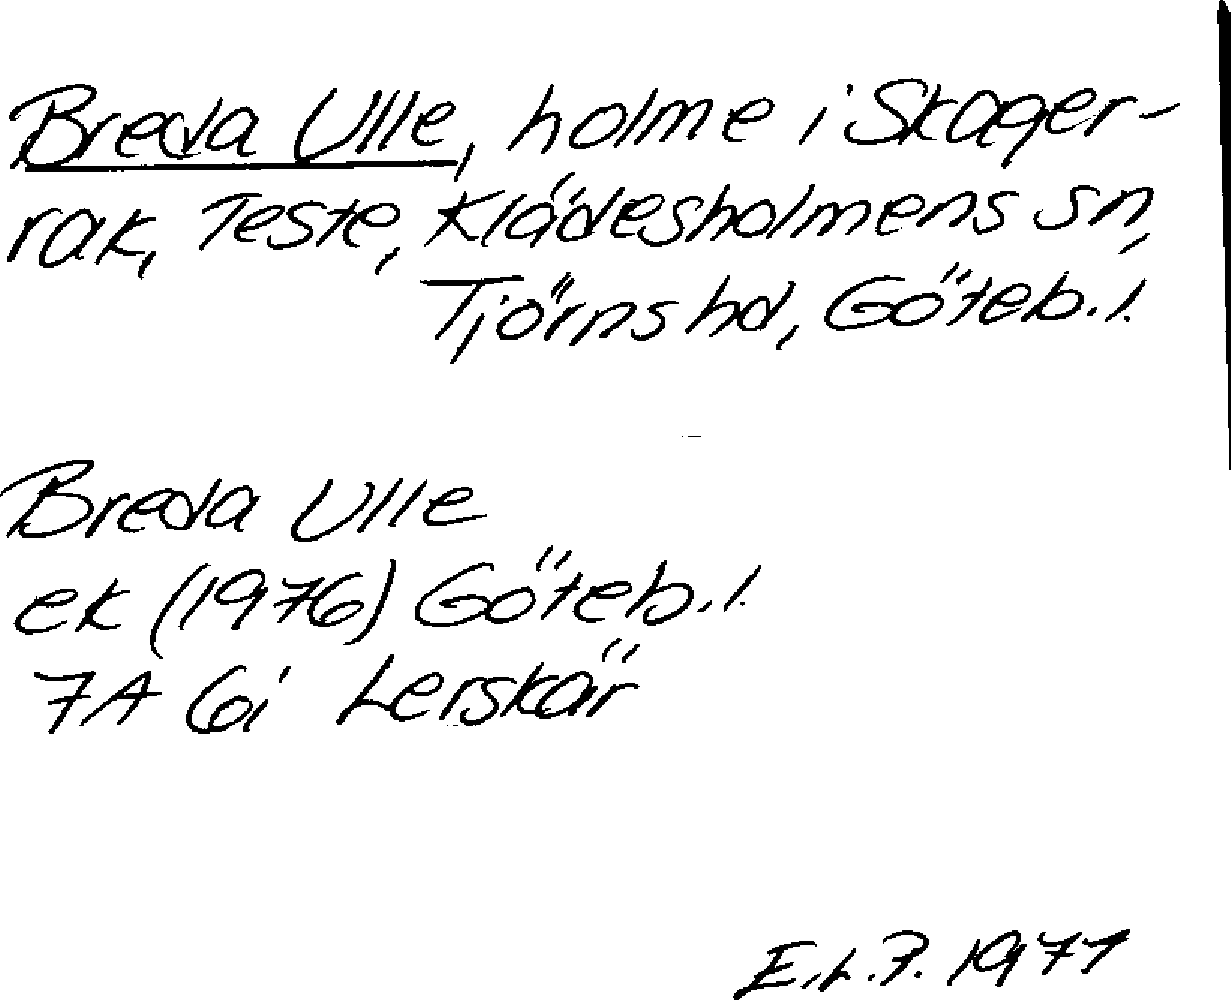 Breda Ulle, holme i Skager-
rak, Teste, Klädesholmens sn,
Tjörns hd, Göteb. l.
Breda Ulle
ek (1976) Göteb. l.
7A 6i Lerskär
E.L.P. 1977